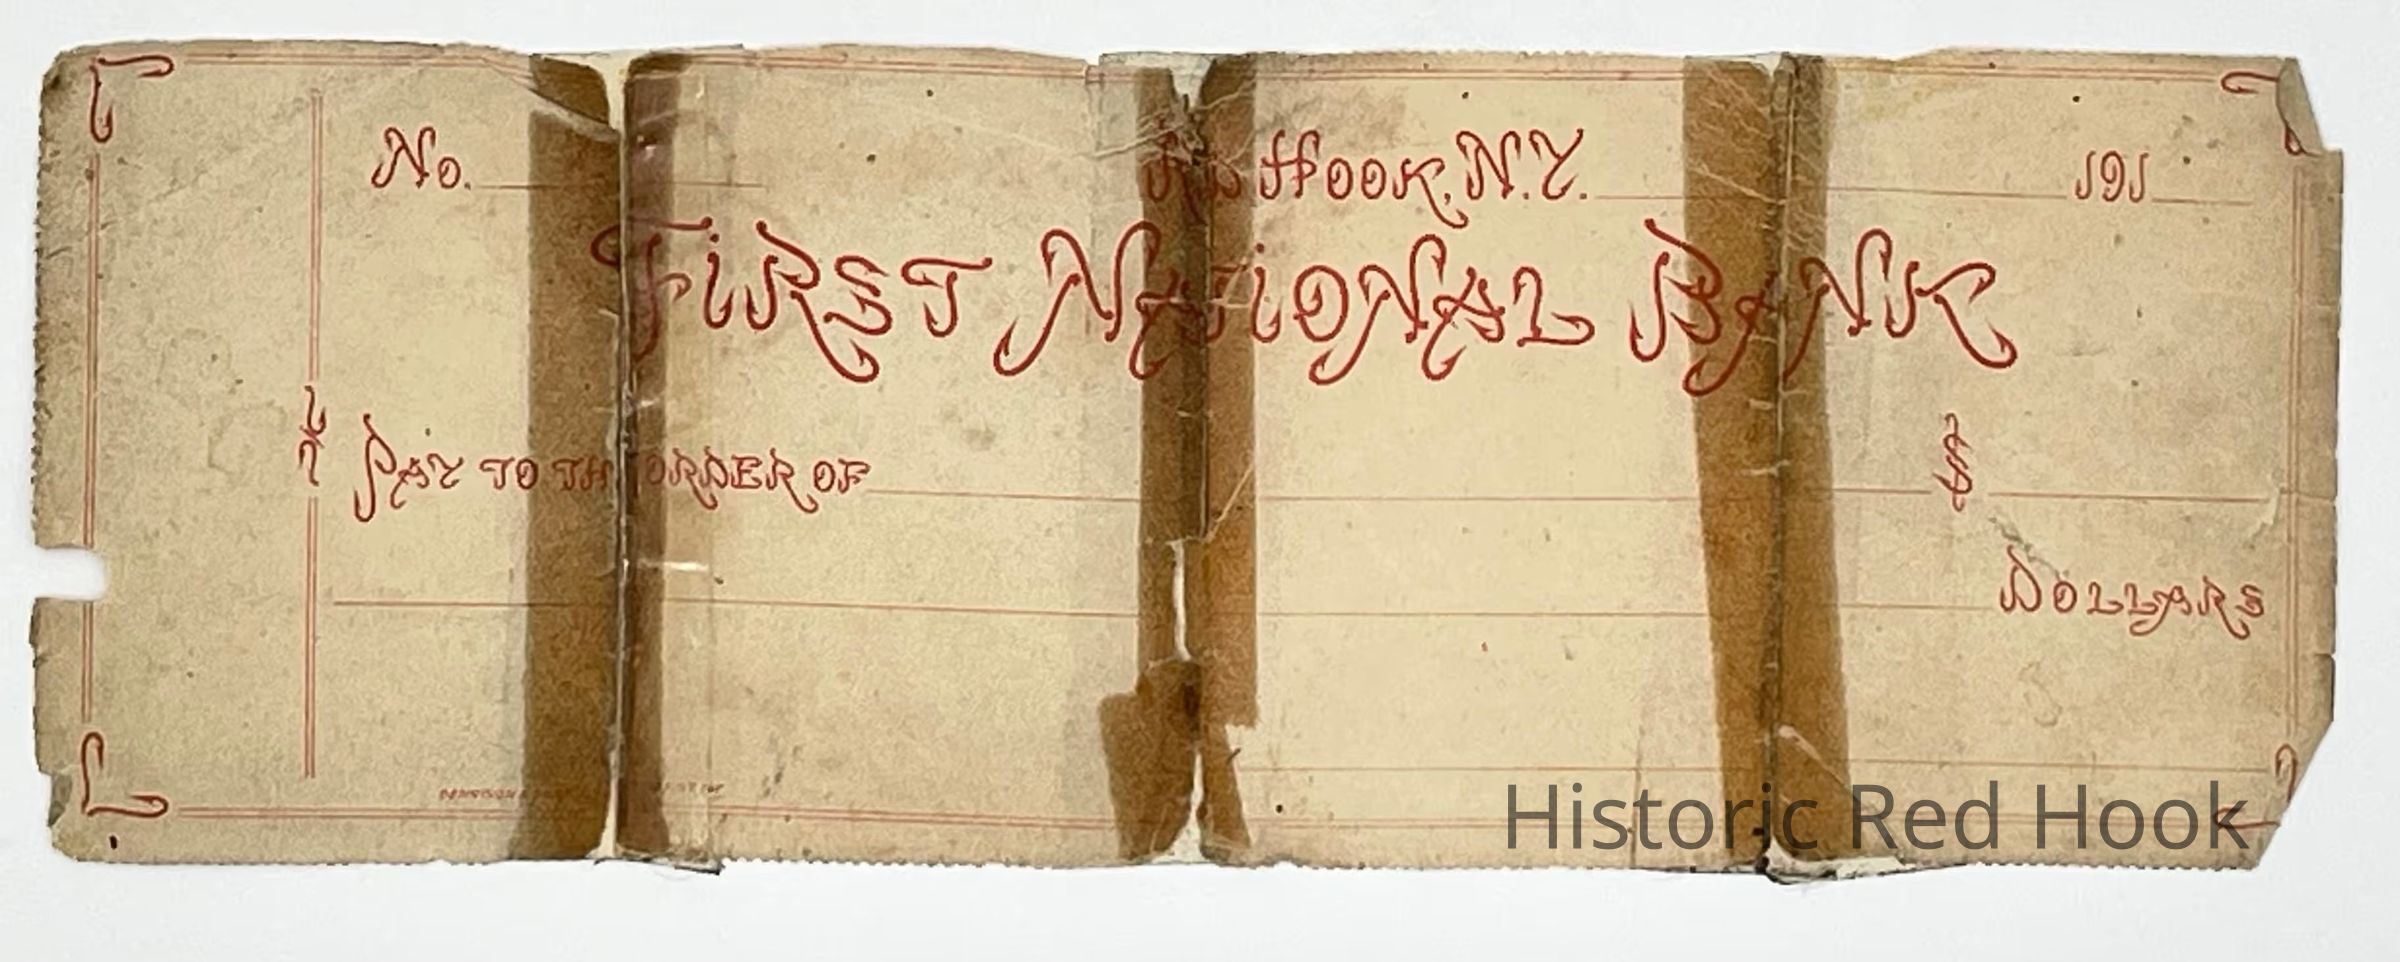 No.
Hook, N.Y. 191
First National Bank
Pay to th order of $
Dollars
Historic Red Hook